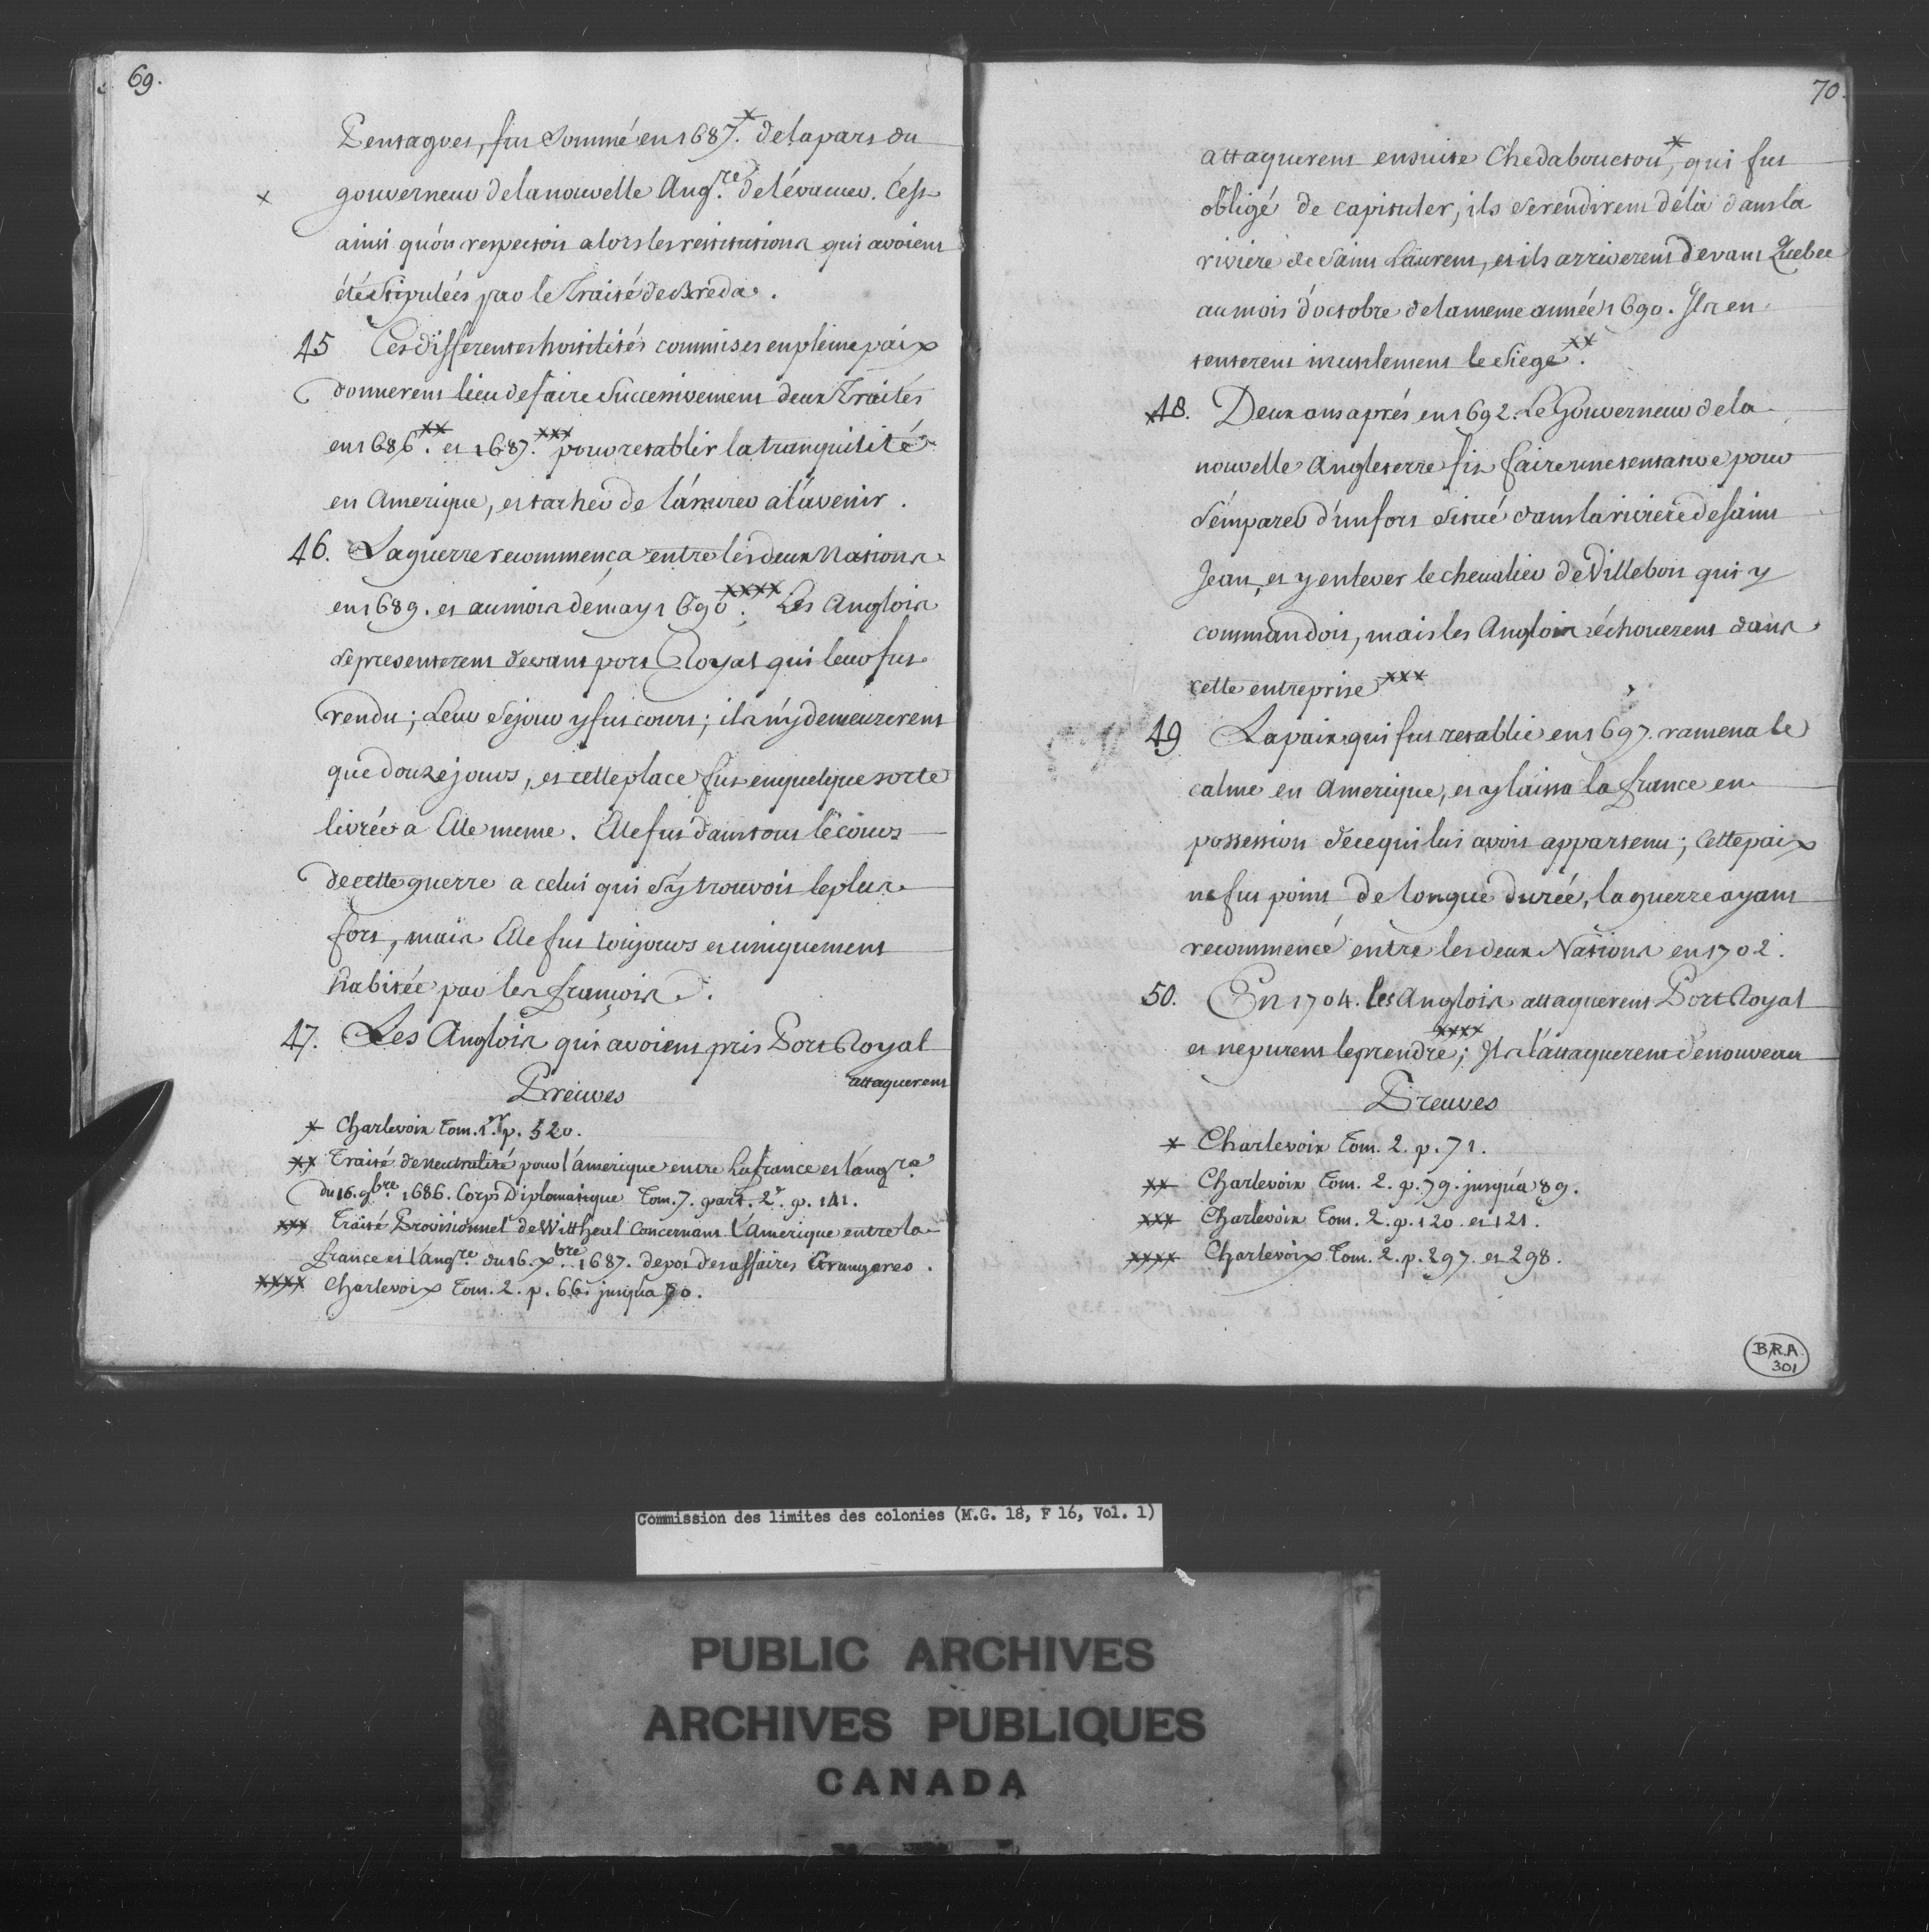 69.
Pentagoet, fut sommé en 1687.* de la part du
gouverneur de la nouvelle Angre. de l'évacuer. C'est
x
ainsi qu'on respectoit alors les restitutions qui avoient
été stipulées par le Traité de Breda.
45 Ces differentes hostilités commises en pleine paix
donnerent lieu de faire successivement deux Traités
en 1686.** et 1687.*** pour retablir la tranquilité
en Amerique, et tacher de l'assurer a l'avenir.
46. La guerre recommença entre les deux Nations
en 1689. et au mois de may 1690.**** Les Anglois
se presenterent devant port Royal qui leur fut
rendu; Leur sejour y fut court; ils n'y demeurerent
que douze jours, et cette place fut en quelque sorte
livrée a Elle meme. Elle fut dans tout le cours
de cette guerre a celui qui s'y trouvoit le plus
fort, mais Elle fut toujours et uniquement
habitée par les françois.
47. Les Anglois qui avoient pris Port Royal
attaquerent
Preuves
* Charlevoix Tom. 1er. p. 520.
** Traité de neutralité pour l'amerique entre La france et l'angre.
du 16. 9bre. 1686. Corps Diplomatique Tom. 7. part. 2e. p. 141.
*** Traité Provisionnel de Wittheal Concernant L'Amerique entre la
france et l'angre. du 16. xbre. 1687. depot des affaires Etrangeres.
**** Charlevoix Tom. 2. p. 66. jusqu'a 70.
70.
attaquerent ensuite Chedabouctou*, qui fut
obligé de capituler, ils se rendirent de là dans la
riviere de Saint Laurent, et ils arriverent devant Quebec
au mois d'octobre de la meme année 1690. Ils en
tenterent inutilement le Siege**.
48. Deux ans aprés en 1692. Le Gouverneur de la
nouvelle Angleterre fit faire une tentative pour
s'emparer d'un fort situé dans la riviere de saint
Jean, et y enlever le chevalier de Villebon qui y
commandoit, mais les Anglois échouerent dans
cette entreprise***
49 La paix qui fut retablie en 1697. ramena le
calme en Amerique, et y laissa la france en
possession de ce qui lui avoit appartenu; Cette paix
ne fut point de longue durée, la guerre ayant
recommencé entre les deux Nations en 1702.
50. En 1704. les Anglois attaquerent Port Royal
et ne purent le prendre****; Ils l'attaquerent de nouveau
Preuves
* Charlevoix Tom. 2. p. 71.
** Charlevoix Tom. 2. p. 79. jusqu'a 89.
*** Charlevoix Tom. 2. p. 120. et 121.
**** Charlevoix Tom. 2. p. 297. et 298.
B.R.A.
301
Commission des limites des colonies (M.G. 18, F 16, Vol. 1)
PUBLIC ARCHIVES
ARCHIVES PUBLIQUES
CANADA